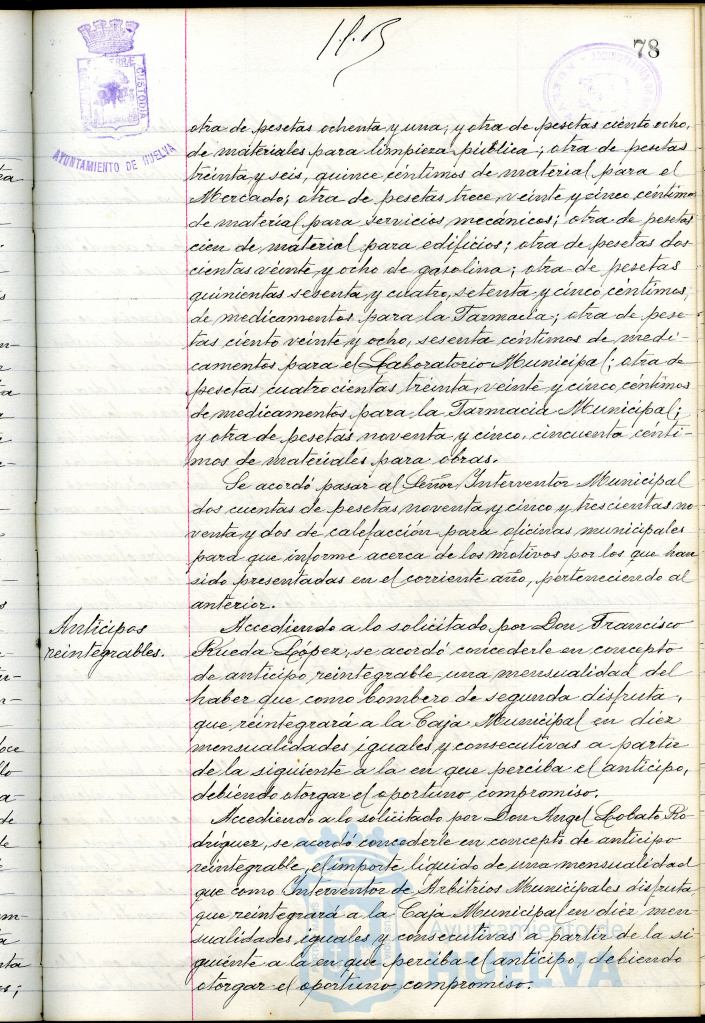 78
CUSTODIA
AYUNTAMIENTO DE HUELVA
otra de pesetas ochenta y una; y otra de pesetas ciento ocho,
de materiales para limpieza pública; otra de pesetas
treinta y seis, quince céntimos de material para el
Mercado; otra de pesetas trece, veinte y cinco céntimos
de material para servicios mecánicos; otra de pesetas
cien de material para edificios; otra de pesetas dos
cientas veinte y ocho de gasolina; otra de pesetas
quinientas sesenta y cuatro, setenta y cinco céntimos,
de medicamentos para la Farmacia; otra de pese-
tas ciento veinte y ocho, sesenta céntimos de medi-
camentos para el Laboratorio Municipal; otra de
pesetas cuatrocientas treinta, veinte y cinco céntimos
de medicamentos para la Farmacia Municipal;
y otra de pesetas noventa y cinco, cincuenta cénti-
mos de materiales para obras.
Se acordó pasar al Señor Interventor Municipal
dos cuentas de pesetas noventa y cinco y trescientas no
venta y dos de calefacción para oficinas municipales
para que informe acerca de los motivos por los que han
sido presentadas en el corriente año, perteneciendo al
anterior.
Anticipos
reintegrables.
Accediendo a lo solicitado por Don Francisco
Rueda López, se acordó concederle en concepto
de anticipo reintegrable una mensualidad del
haber que como bombero de segunda disfruta,
que reintegrará a la Caja Municipal en diez
mensualidades iguales y consecutivas a partir
de la siguiente a la en que perciba el anticipo,
debiendo otorgar el oportuno compromiso.
Accediendo a lo solicitado por Don Angel Lobato Ro-
dríguez, se acordó concederle en concepto de anticipo
reintegrable, el importe líquido de una mensualidad
que como Interventor de Arbitrios Municipales disfruta
que reintegrará a la Caja Municipal en diez men
sualidades iguales y consecutivas a partir de la si
guiente a la en que perciba el anticipo, debiendo
otorgar el oportuno compromiso.
Ayuntamiento de
HUELVA